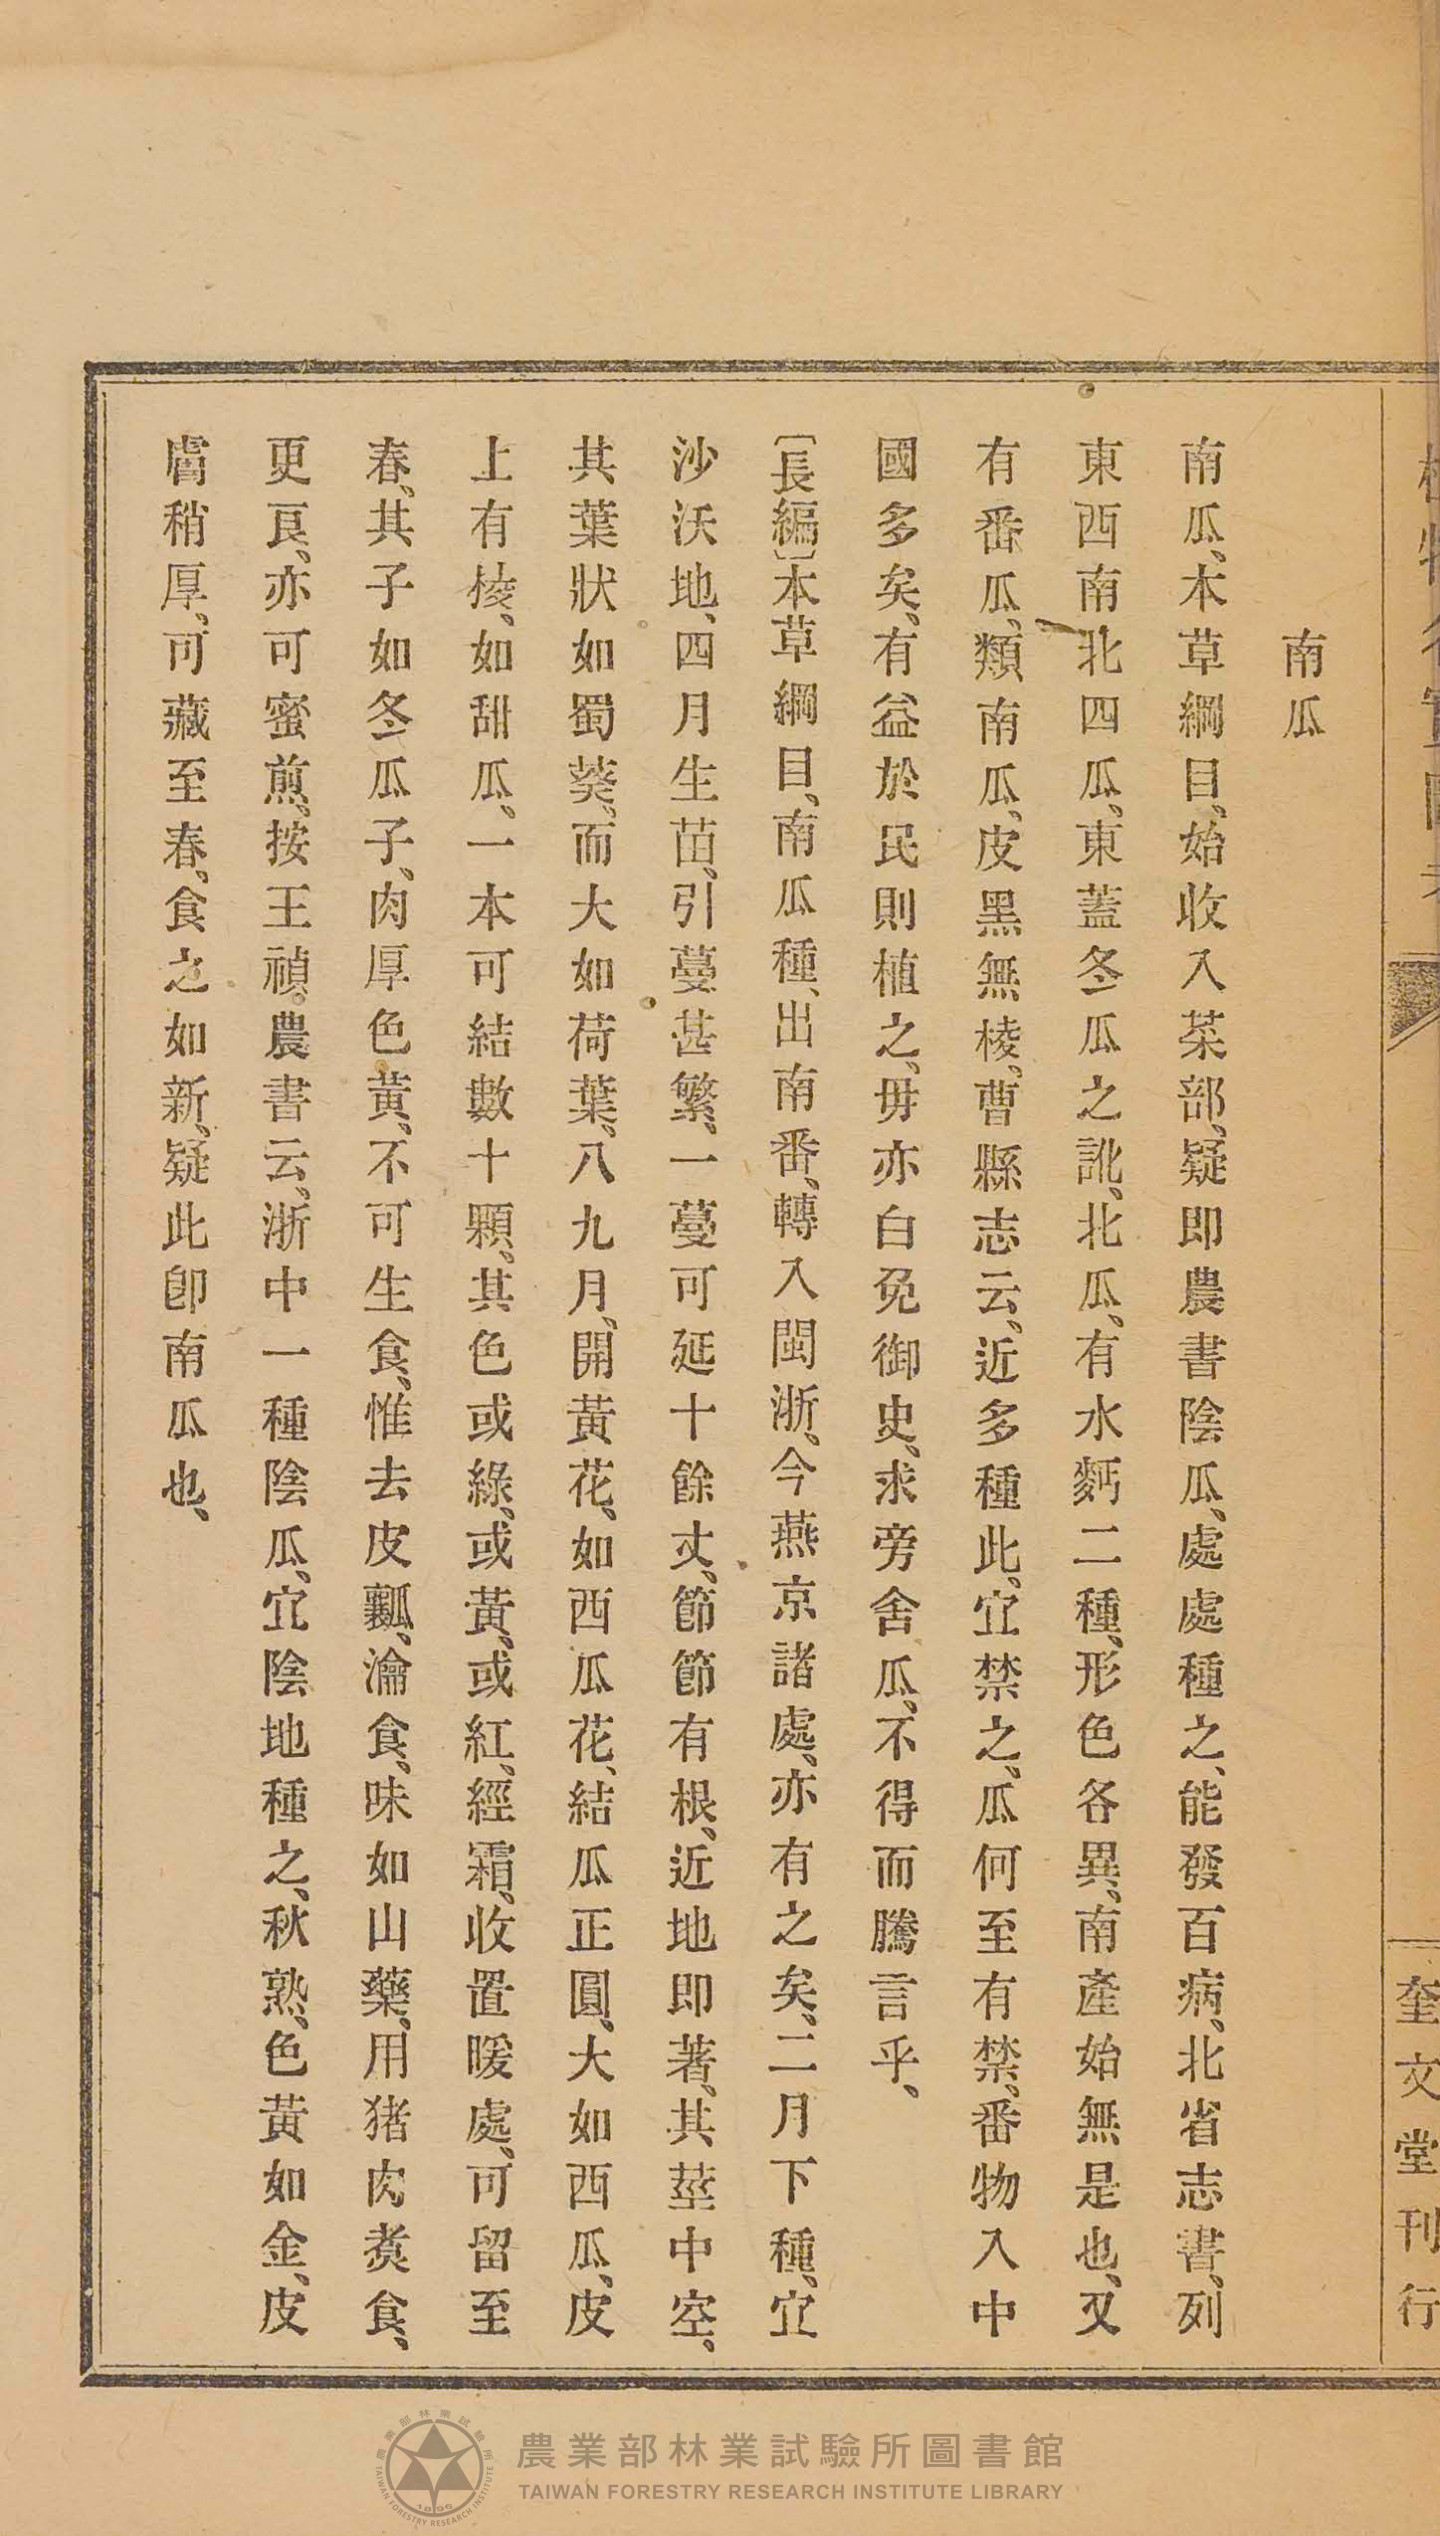 南瓜
南瓜、本草綱目、始收入菜部、疑即農書陰瓜、處處種之、能發百病、北省志書、列
東西南北四瓜、東蓋冬瓜之訛、北瓜、有水麪二種、形色各異、南產始無是也、又
有番瓜、類南瓜、皮黑無棱、曹縣志云、近多種此、宜禁之、瓜何至有禁、番物入中
國多矣、有益於民則植之、毋亦白兔御史、求旁舍瓜、不得而騰言乎、
〔長編〕本草綱目、南瓜種、出南番、轉入閩浙、今燕京諸處、亦有之矣、二月下種、宜
沙沃地、四月生苗、引蔓甚繁、一蔓可延十餘丈、節節有根、近地即著、其莖中空、
其葉狀如蜀葵、而大如荷葉、八九月、開黃花、如西瓜花、結瓜正圓、大如西瓜、皮
上有棱、如甜瓜、一本可結數十顆、其色或綠、或黃、或紅、經霜、收置暖處、可留至
春、其子如冬瓜子、肉厚色黃、不可生食、惟去皮瓤、瀹食、味如山藥、用猪肉煮食、
更良、亦可蜜煎、按王禎農書云、浙中一種陰瓜、宜陰地種之、秋熟、色黃如金、皮
膚稍厚、可藏至春、食之如新、疑此卽南瓜也、
奎文堂刊行
農業部林業試驗所圖書館
TAIWAN FORESTRY RESEARCH INSTITUTE LIBRARY